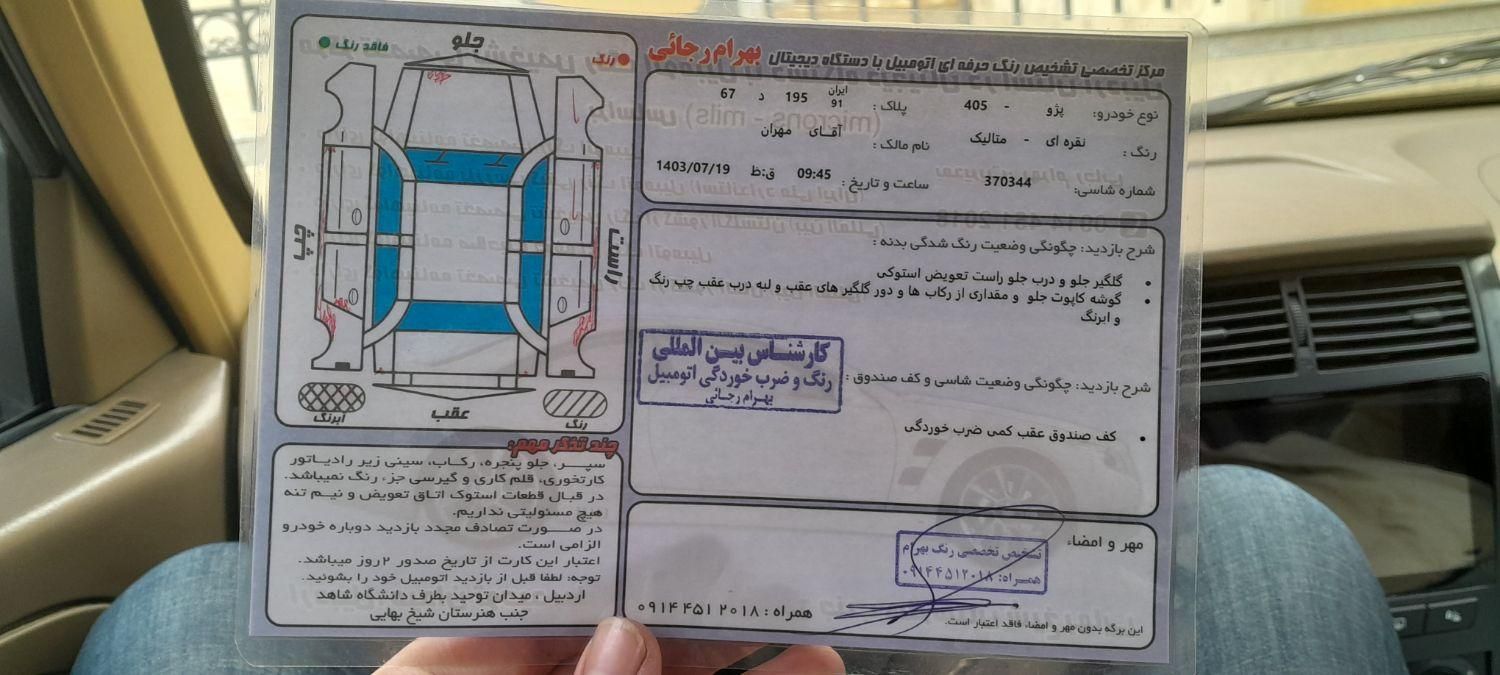 مرکز تخصصی تشخیص رنگ حرفه ای اتومبیل با دستگاه دیجیتال بهرام رجائی
نوع خودرو: پژو - 405 پلاک : ایران 91 195 د 67
رنگ : نقره ای - متالیک نام مالک : آقای مهران
شماره شاسی: 370344 ساعت و تاریخ : 09:45 ق:ظ 1403/07/19
شرح بازدید: چگونگی وضعیت رنگ شدگی بدنه :
• گلگیر جلو و درب جلو راست تعویض استوکی
• گوشه کاپوت جلو و مقداری از رکاب ها و دور گلگیر های عقب و لبه درب عقب چپ رنگ
و ابرنگ
شرح بازدید: چگونگی وضعیت شاسی و کف صندوق :
کارشناس بین المللی
رنگ و ضرب خوردگی اتومبیل
بهرام رجائی
• کف صندوق عقب کمی ضرب خوردگی
مهر و امضاء
تشخیص تخصصی رنگ بهرام
همراه: ۰۹۱۴۴۵۱۲۰۱۸
همراه : ۲۰۱۸ ۴۵۱ ۰۹۱۴
این برگه بدون مهر و امضاء، فاقد اعتبار است.
رنگ
جلو
فاقد رنگ
راست
چپ
عقب
رنگ
آبرنگ
چند تذکر مهم:
سپر، جلو پنجره، رکاب، سینی زیر رادیاتور
کارتخوری، قلم کاری و گیرسی جزء رنگ نمیباشد.
در قبال قطعات استوک اتاق تعویض و نیم تنه
هیچ مسئولیتی نداریم.
در صورت تصادف مجدد بازدید دوباره خودرو
الزامی است.
اعتبار این کارت از تاریخ صدور ۲روز میباشد.
توجه: لطفا قبل از بازدید اتومبیل خود را بشوئید.
اردبیل ، میدان توحید بطرف دانشگاه شاهد
جنب هنرستان شیخ بهایی